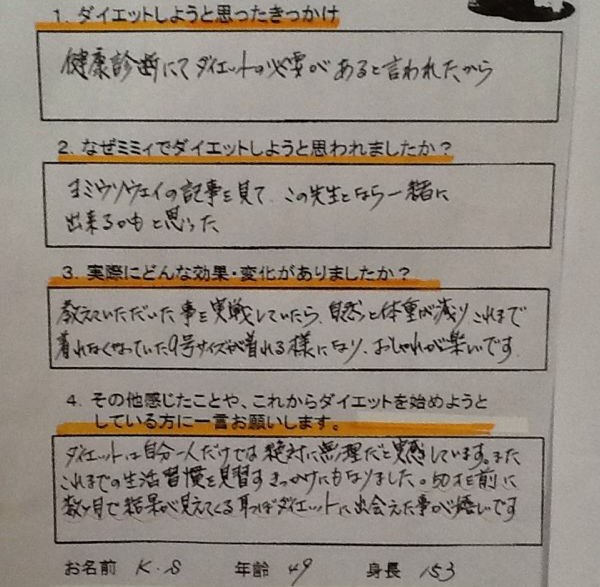 1. ダイエットしようと思ったきっかけ
健康診断にてダイエットの必要があると言われたから
2. なぜミミィでダイエットしようと思われましたか？
ヨミウリウェイの記事を見て、この先生となら一緒に
出来るかもと思った
3. 実際にどんな効果・変化がありましたか？
教えていただいた事を実戦していたら、自然と体重が減り これまで
着れなくなっていた9号サイズが着れる様になり、おしゃれが楽しいです
4. その他感じたことや、これからダイエットを始めようと
している方に一言お願いします。
ダイエットは自分一人だけでは絶対に無理だと実感しています。また
これまでの生活習慣を見習すきっかけにもなりました。
数ヶ月で結果が見えてくる耳つぼダイエットに出会えた事が嬉しいです
お名前 K.S 年齢 49 身長 153